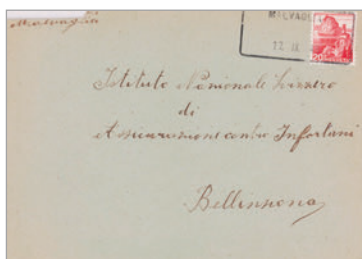 Malvaglia
MALVAGLIA
12. IX
20
Istituto Nazionale Svizzero
di
Assicurazione contro Infortuni
Bellinzona